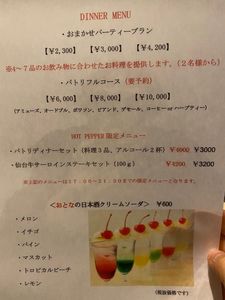 DINNER MENU
・おまかせパーティープラン
【￥2,300】 【￥3,000】 【￥4,200】
※4～7品のお飲み物に合わせたお料理を提供します。（2名様から）
・パトリフルコース（要予約）
【￥6,000】 【￥8,000】 【￥10,000】
(アミューズ、オードブル、ポワソン、ビアンド、デセール、コーヒー or ハーブティー)
HOT PEPPER 限定メニュー
・パトリディナーセット（料理3品、アルコール2杯） ￥4000 ￥3000
・仙台牛サーロインステーキセット（100ｇ） ￥4200 ￥3200
※上記のメニューは17：00～21：30までの限定メニューとなります。
＜おとなの日本酒クリームソーダ＞ ￥600
・メロン
・イチゴ
・パイン
・マスカット
・トロピカルピーチ
・レモン
(税抜価格です)